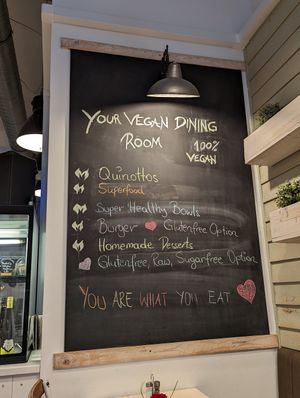 YOUR VEGAN DINING
ROOM 100%
VEGAN
Quinottos
Superfood
Super Healthy Bowls
Burger Glutenfree Option
Homemade Desserts
Glutenfree, Raw, Sugarfree Option
YOU ARE WHAT YOU EAT